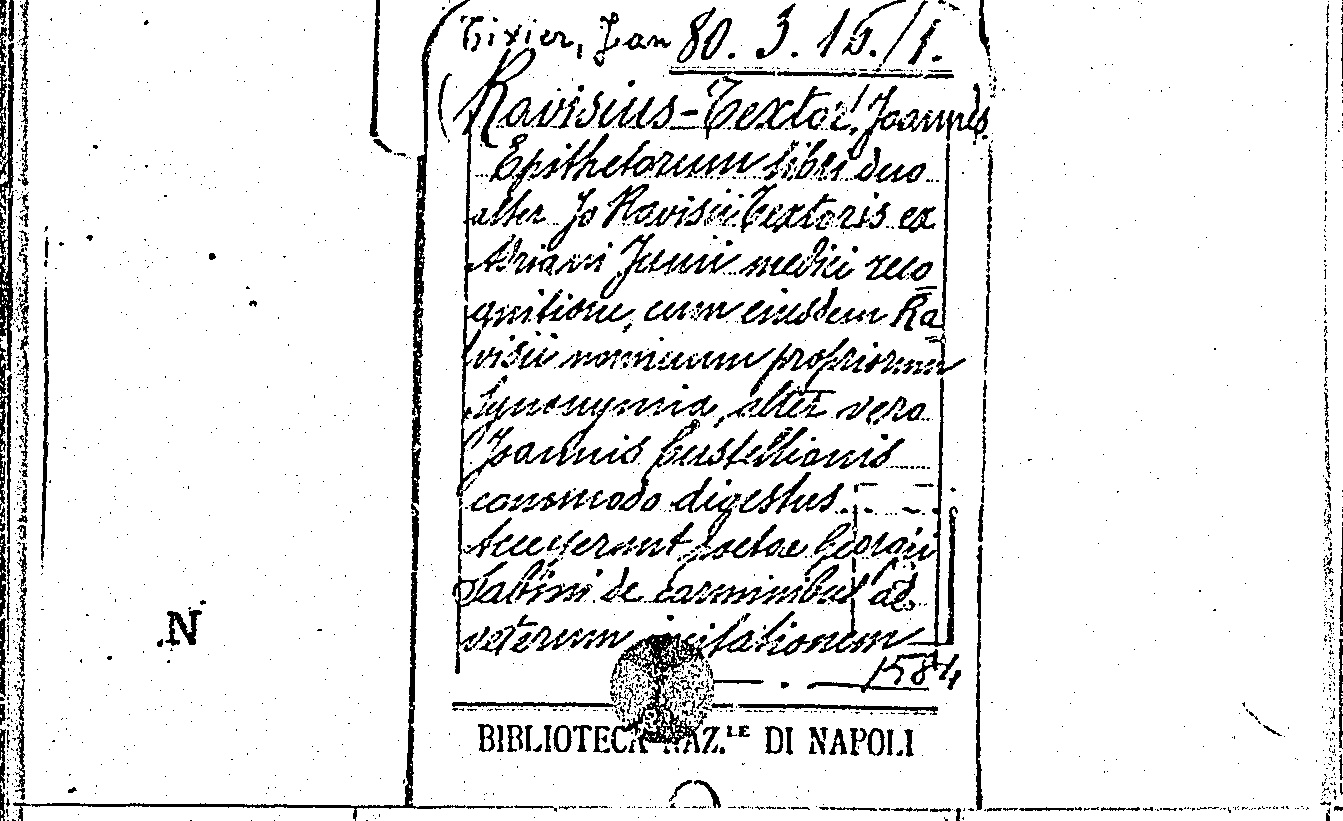 Tixier, Jan 80. 3. 15./1.
(Ravisius-Textor, Joannes.)
Epithetorum libri duo
alter Jo Ravisii Textoris ex
Adriani Junii medici reco
gnitione, cum eiusdem Ra
visii nominum propriorum
Synonymia, alter vero
Joannis Custellionis
conomodo digestus
Accesserunt poetae Georgii
Sabini de carminibus ad
veterum imitationem
1584
BIBLIOTECA NAZ.LE DI NAPOLI
N